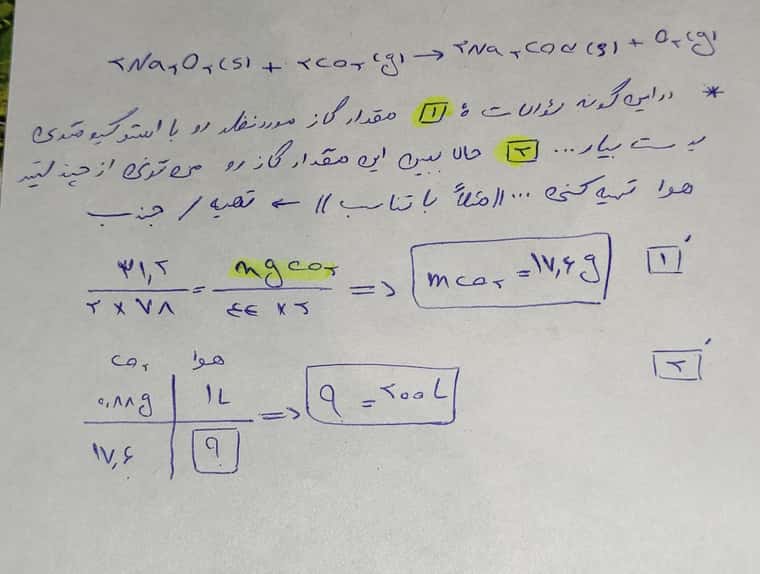 ۲Na۲O۲(s) + ۲CO۲(g) → ۲Na۲CO۳(s) + O۲(g)
* در این گونه سؤالات : ۱ مقدار گاز موردنظر رو با استوکیومتری
بدست بیار... ۲ حالا ببین این مقدار گاز رو می‌تونی از چند لیتر
هوا تهیه کنی ... // مثلاً با تناسب // ← تهیه / جذب
۳۱,۲ / ۲ × ۷۸ = mg CO۲ / ۴۴ × ۲ => mCO۲ = ۱۷,۶ g ۱
CO۲ هوا ۲
۰,۰۸۸g ۱L => ? = ۲۰۰L
۱۷,۶ ?